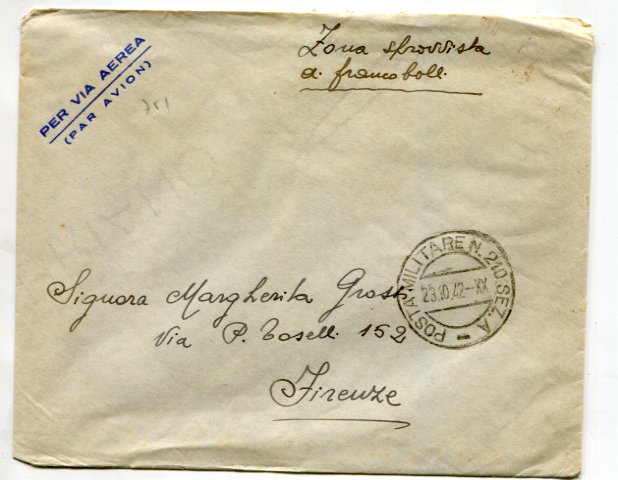 PER VIA AEREA
(PAR AVION)
Zona sprovvista
di francobolli
POSTA MILITARE N. 210 SEZ. A
23.10.42-XX
Signora Margherita Grossi
Via P. Toselli 152
Firenze